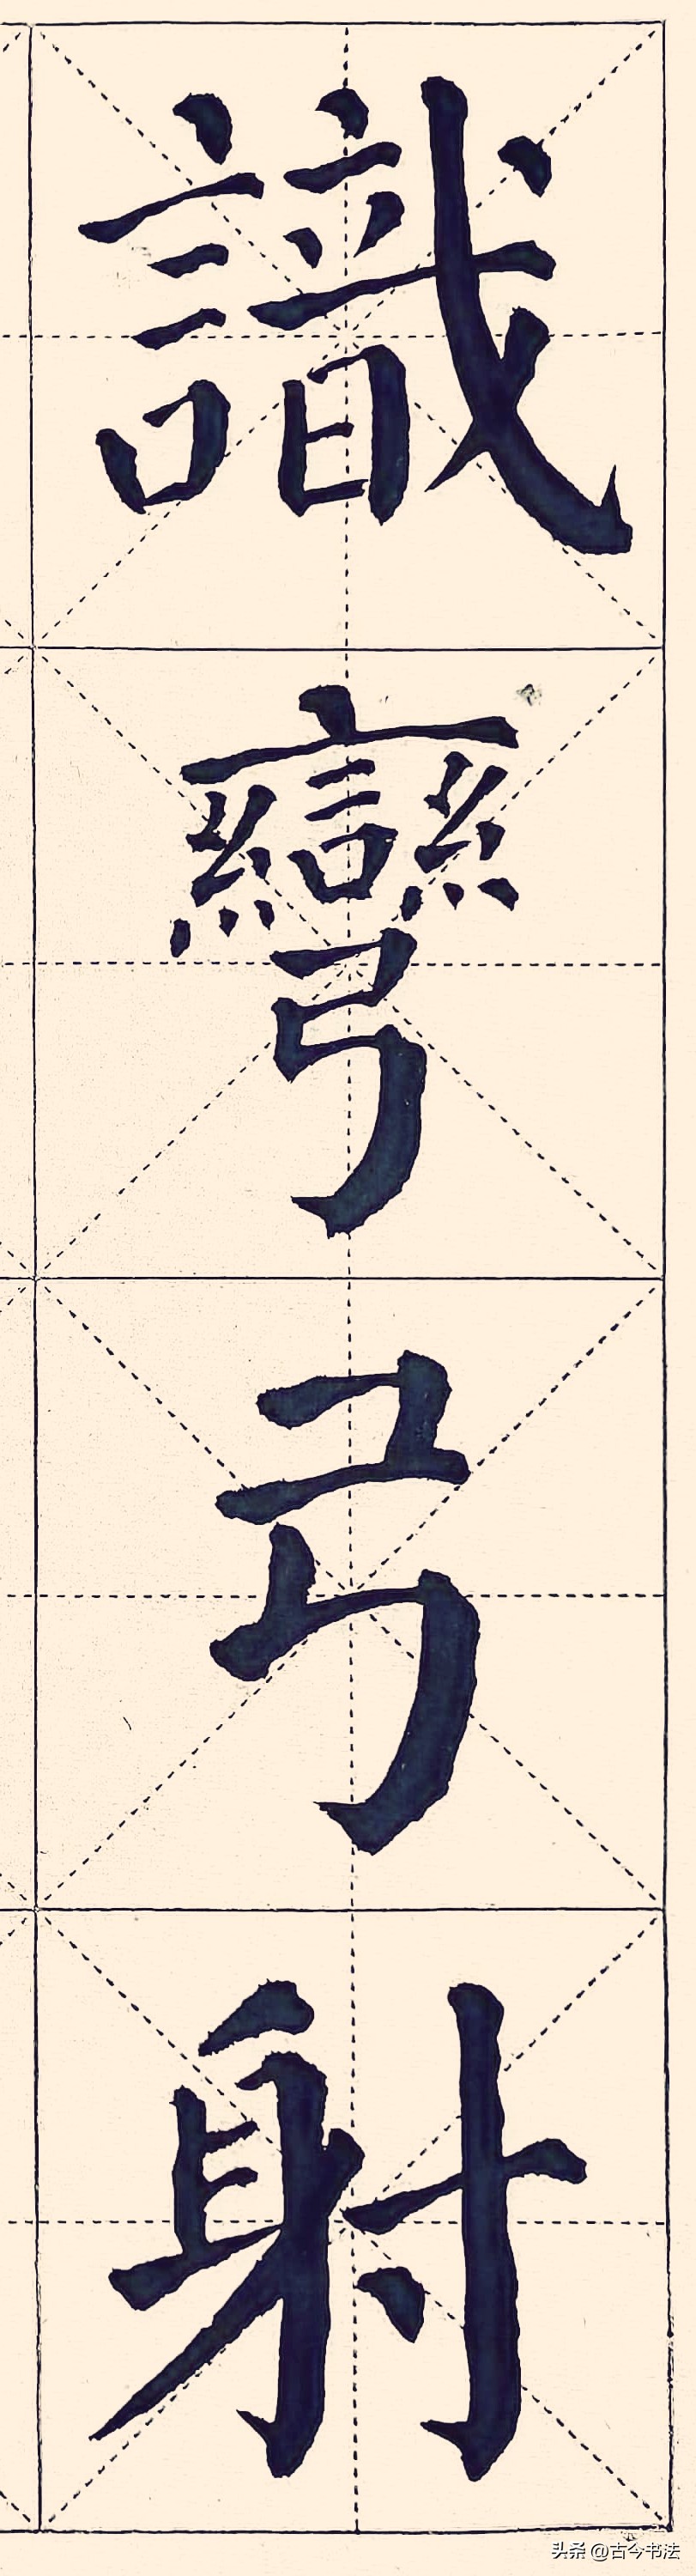 識彎弓射
头条 @古今书法